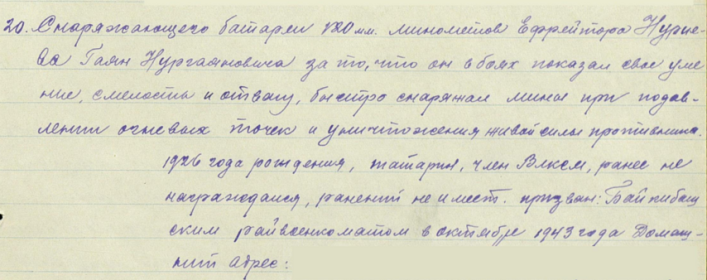 20. Снаряжающего батареи 120 мм. минометов Ефрейтора Нурие-
ва Гаян Нургаяновича за то, что он в боях показал свое уме
ние, смелость и отвагу, быстро снаряжал мины при подав-
лении огневых точек и уничтожения живой силы противника.
1926 года рождения, татарин, член ВЛКСМ, ранее не
награждался, ранений не имеет. призван: Байкибаш
ским райвоенкоматом в октябре 1943 года Домаш-
ний адрес: